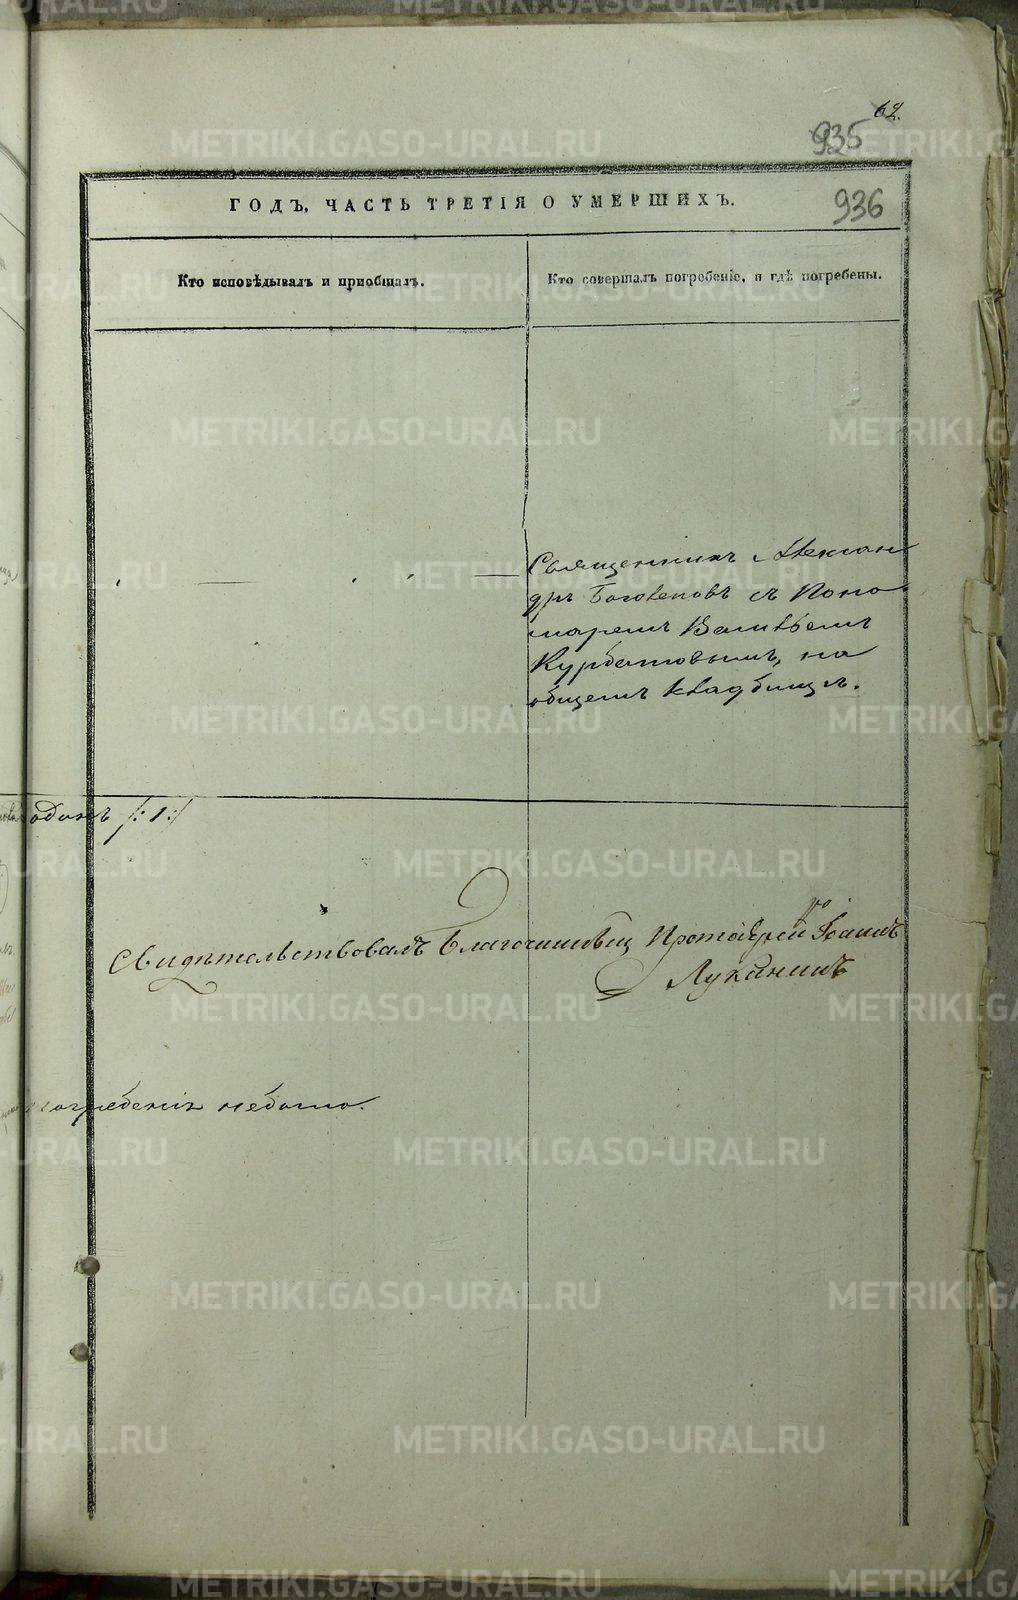 62.
935
936
ГОДЪ, ЧАСТЬ ТРЕТІЯ О УМЕРШИХЪ.
Кто исповѣдывалъ и приобщалъ.
Кто совершалъ погребеніе, и гдѣ погребены.
Священникъ Алексан
дръ Боголеповъ съ Поно
маремъ Василіемъ
Курбатовымъ, на
общемъ кладбищѣ.
одинъ /:1:/
Свидѣтельствовалъ Благочинный Протоіерей Іоаннъ
Луканинъ
погребенія небыло.
METRIKI.GASO-URAL.RU